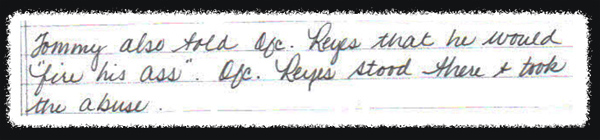 Tommy also told Ofc. Reyes that he would
"fire his ass". Ofc. Reyes stood there & took
the abuse.